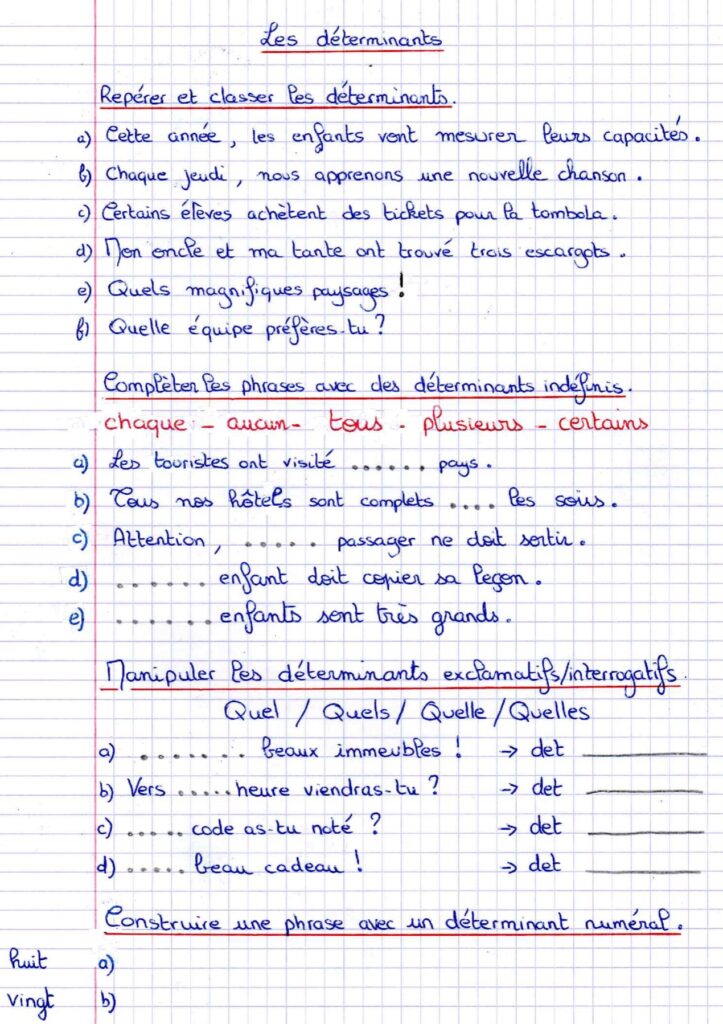 Les déterminants
Repérer et classer les déterminants.
a) Cette année, les enfants vont mesurer leurs capacités.
b) Chaque jeudi, nous apprenons une nouvelle chanson.
c) Certains élèves achètent des tickets pour la tombola.
d) Mon oncle et ma tante ont trouvé trois escargots.
e) Quels magnifiques paysages !
f) Quelle équipe préfères-tu ?
Compléter les phrases avec des déterminants indéfinis.
chaque - aucun - tous - plusieurs - certains
a) Les touristes ont visité ...... pays.
b) Tous nos hôtels sont complets .... les soirs.
c) Attention, ..... passager ne doit sortir.
d) ....... enfant doit copier sa leçon.
e) ....... enfants sont très grands.
Manipuler les déterminants exclamatifs/interrogatifs.
Quel / Quels / Quelle / Quelles
a) ........ beaux immeubles ! → det ________
b) Vers ..... heure viendras-tu ? → det ________
c) ..... code as-tu noté ? → det ________
d) ..... beau cadeau ! → det ________
Construire une phrase avec un déterminant numéral.
huit a)
vingt b)